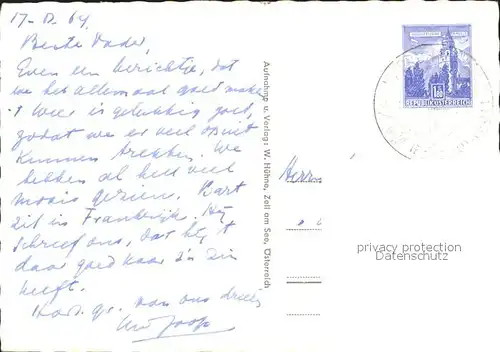 17-8.64
Beste Vader,
Even een berichtje, dat
we het allemaal goed maken
't Weer is gelukkig goed,
zodat we er veel op uit
kunnen trekken. We
hebben al heel veel
moois gezien. Bart
zit in Frankrijk. Hij
schreef ons, dat hij 't
daar goed naar z'n zin
heeft.
Hart. gr. van ons
Joop
Aufnahme u. Verlag: W. Hühne, Zell am See, Österreich
REPUBLIK ÖSTERREICH
Herrn
privacy protection
Datenschutz